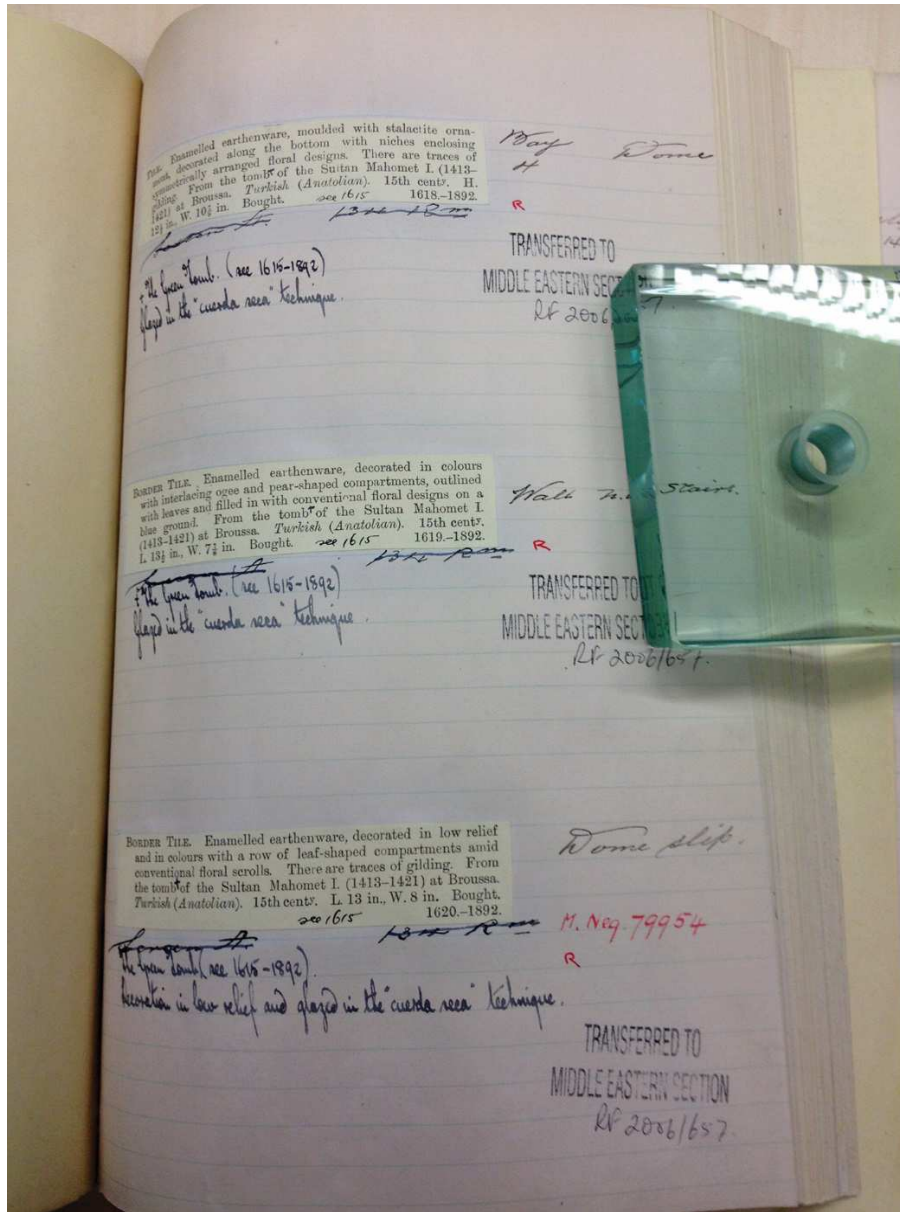 TILE. Enamelled earthenware, moulded with stalactite orna-
ment, decorated along the bottom with niches enclosing
symmetrically arranged floral designs. There are traces of
gilding. From the tomb† of the Sultan Mahomet I. (1413–
1421) at Broussa. Turkish (Anatolian). 15th centy. H.
12½ in., W. 10⅞ in. Bought. see 1615 1618.–1892.
Bay Dome
4
R
† The Green Tomb. (see 1615-1892)
Glazed in the "cuerda seca" technique.
TRANSFERRED TO
MIDDLE EASTERN SECTION
RF 2006/657.
BORDER TILE. Enamelled earthenware, decorated in colours
with interlacing ogee and pear-shaped compartments, outlined
with leaves and filled in with conventional floral designs on a
blue ground. From the tomb† of the Sultan Mahomet I.
(1413–1421) at Broussa. Turkish (Anatolian). 15th centy.
L. 13½ in., W. 7⅞ in. Bought. see 1615 1619.–1892.
Wall Stairs.
13th Rm
R
† The Green Tomb. (see 1615-1892)
Glazed in the "cuerda seca" technique.
TRANSFERRED TO
MIDDLE EASTERN SECTION
RF 2006/657.
BORDER TILE. Enamelled earthenware, decorated in low relief
and in colours with a row of leaf-shaped compartments amid
conventional floral scrolls. There are traces of gilding. From
the tomb† of the Sultan Mahomet I. (1413–1421) at Broussa.
Turkish (Anatolian). 15th centy. L. 13 in., W. 8 in. Bought.
see 1615 1620.–1892.
Dome slip.
13th Rm
M. Neg. 79954
R
The Green Tomb (see 1615-1892).
Decoration in low relief and glazed in the "cuerda seca" technique.
TRANSFERRED TO
MIDDLE EASTERN SECTION
RF 2006/657.